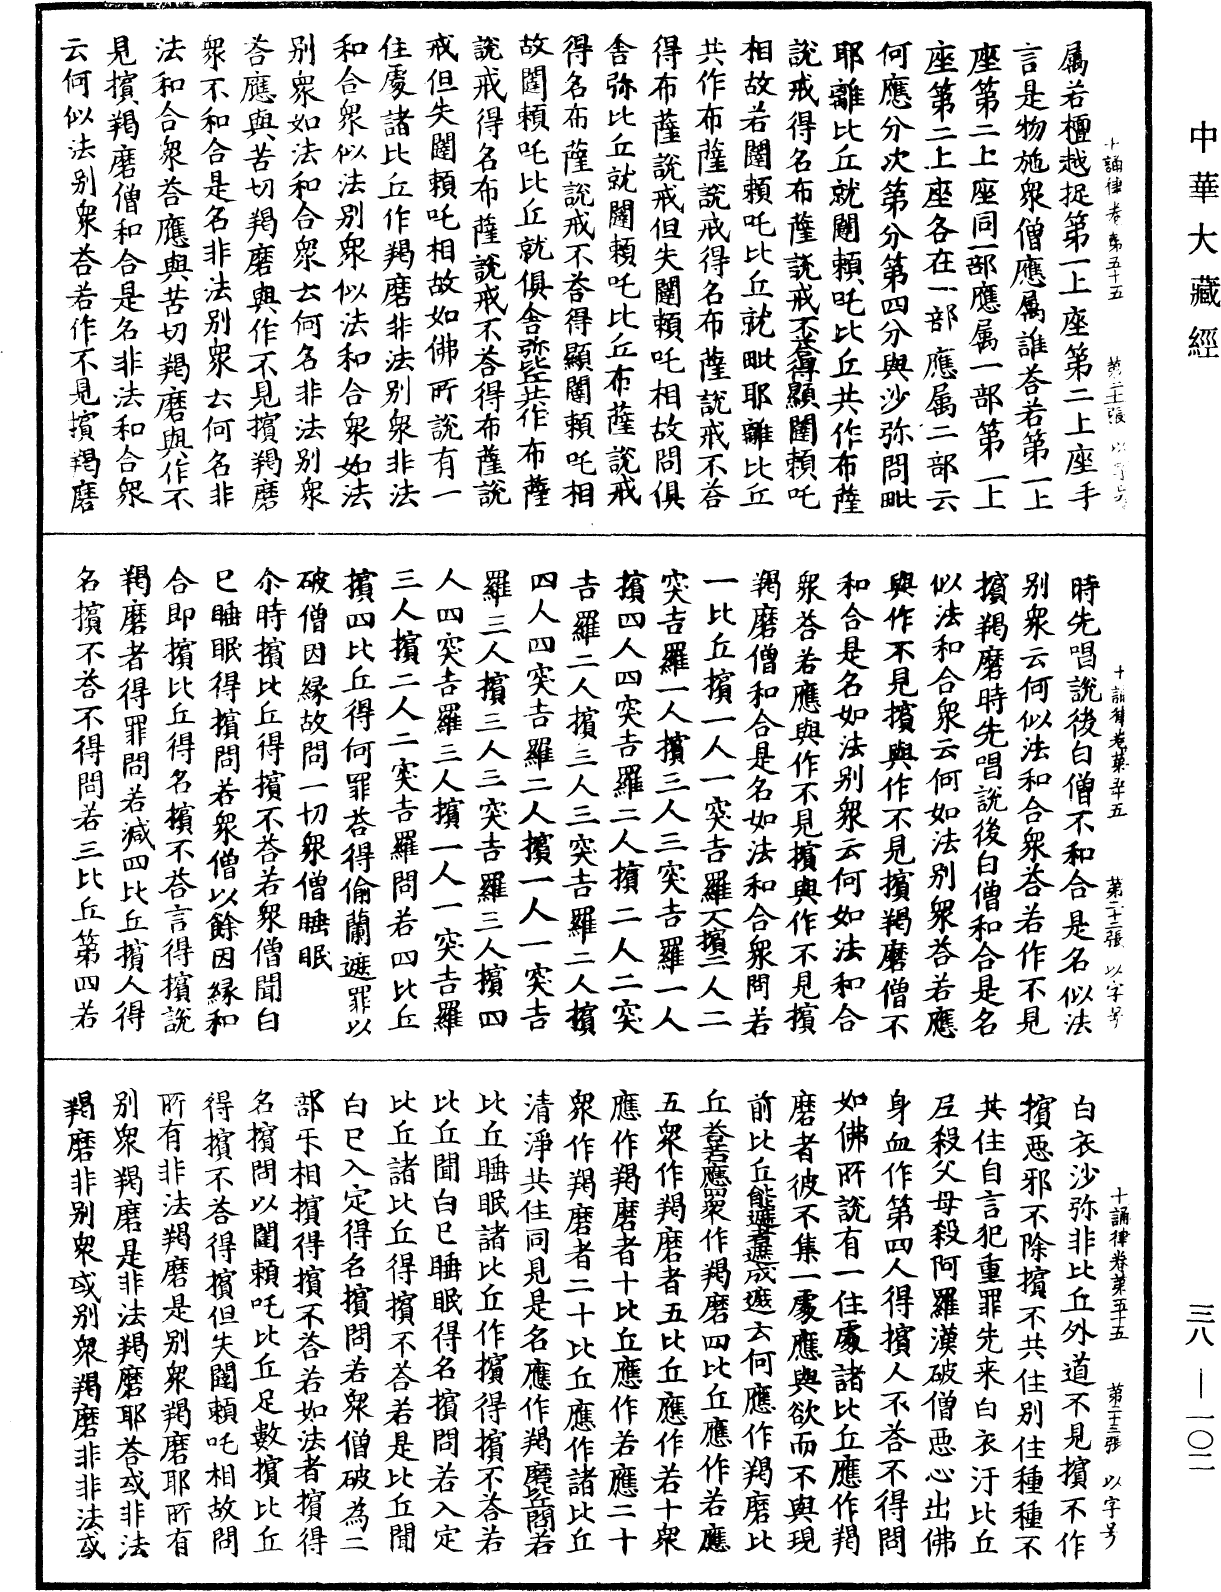 中華大藏經
属若檀越捉第一上座第二上座手
言是物施衆僧應属誰荅若第一上
座第二上座同一部應属一部第一上
座第二上座各在一部應属二部云
何應分次第分第四分與沙弥問毗
耶離比丘就闥頼吒比丘共作布薩
說戒得名布薩說戒不荅得顯闥頼吒
相故若闥頼吒比丘就毗耶離比丘
共作布薩說戒得名布薩說戒不荅
得布薩說戒但失闥頼吒相故問俱
舍弥比丘就闥頼吒比丘布薩說戒
得名布薩說戒不荅得顯闥頼吒相
故闥頼吒比丘就俱舍弥比丘共作布薩
說戒得名布薩說戒不荅得布薩說
戒但失闥頼吒相故如佛所說有一
住處諸比丘作羯磨非法别衆非法
和合衆似法别衆似法和合衆如法
别衆如法和合衆云何名非法别衆
荅應與苦切羯磨與作不見擯羯磨
衆不和合是名非法别衆云何名非
法和合衆荅應與苦切羯磨與作不
見擯羯磨僧和合是名非法和合衆
云何似法别衆荅若作不見擯羯磨
十誦律卷第五十五 第二十一張 以字号
時先唱說後白僧不和合是名似法
别衆云何似法和合衆荅若作不見
擯羯磨時先唱說後白僧和合是名
似法和合衆云何如法别衆荅若應
與作不見擯與作不見擯羯磨僧不
和合是名如法别衆云何如法和合
衆荅若應與作不見擯與作不見擯
羯磨僧和合是名如法和合衆問若
一比丘擯一人一突吉羅一人擯二人二
突吉羅一人擯三人三突吉羅一人
擯四人四突吉羅二人擯二人二突
吉羅二人擯三人三突吉羅二人擯
四人四突吉羅二人擯一人一突吉
羅三人擯三人三突吉羅三人擯四
人四突吉羅三人擯一人一突吉羅
三人擯二人二突吉羅問若四比丘
擯四比丘得何罪荅得偷蘭遮罪以
破僧因縁故問一切衆僧睡眠
尒時擯比丘得擯不荅若衆僧聞白
已睡眠得擯問若衆僧以餘因縁和
合即擯比丘得名擯不荅言得擯說
羯磨者得罪問若減四比丘擯人得
名擯不荅不得問若三比丘第四若
十誦律卷第五十五 第二十二張 以字号
白衣沙弥非比丘外道不見擯不作
擯惡邪不除擯不共住别住種種不
共住自言犯重罪先来白衣汙比丘
尼殺父母殺阿羅漢破僧惡心出佛
身血作第四人得擯人不荅不得問
如佛所說有一住處諸比丘應作羯
磨者彼不集一處應與欲而不與現
前比丘能遮者遮成遮云何應作羯磨比
丘荅若應四衆作羯磨四比丘應作若應
五衆作羯磨者五比丘應作若十衆
應作羯磨者十比丘應作若應二十
衆作羯磨者二十比丘應作諸比丘
清淨共住同見是名應作羯磨比丘問若
比丘睡眠諸比丘作擯得擯不荅若
比丘聞白已睡眠得名擯問若入定
比丘諸比丘得擯不荅若是比丘聞
白已入定得名擯問若衆僧破為二
部㸦相擯得擯不荅若如法者擯得
名擯問以闥頼吒比丘足數擯比丘
得擯不荅得擯但失闥頼吒相故問
所有非法羯磨是别衆羯磨耶所有
别衆羯磨是非法羯磨耶荅或非法
羯磨非别衆或别衆羯磨非非法或
十誦律卷第五十五 第二十三張 以字号
三八—一〇二